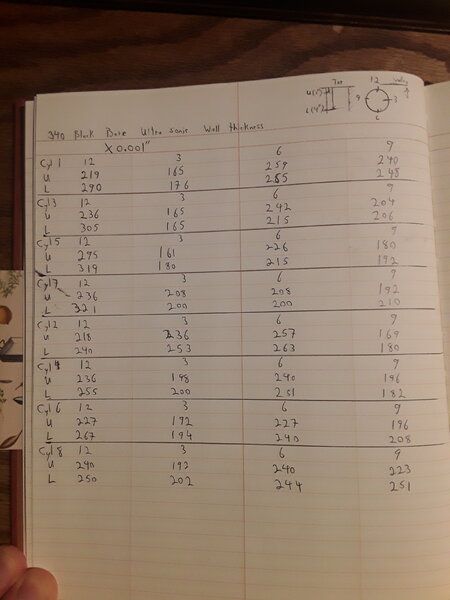 Top 12 Valley
U(1") 9 3
L(4") 6
340 Block Bore Ultra sonic Wall thickness
X 0.001"
Cyl 1 12 3 6 9
U 219 165 259 240
L 290 176 265 248
Cyl 3 12 3 6 9
U 236 165 242 204
L 305 165 215 206
Cyl 5 12 3 6 9
U 275 161 226 180
L 319 180 215 192
Cyl 7 12 3 6 9
U 236 208 208 192
L 321 200 200 210
Cyl 2 12 3 6 9
U 218 236 257 169
L 240 253 263 180
Cyl 4 12 3 6 9
U 236 198 240 196
L 255 200 251 182
Cyl 6 12 3 6 9
U 227 192 227 196
L 267 194 240 208
Cyl 8 12 3 6 9
U 240 192 240 223
L 250 202 244 251